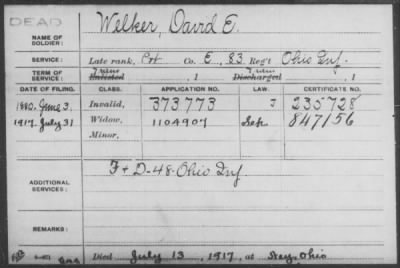 DEAD
NAME OF SOLDIER: Welker, David E.
SERVICE: Late rank, Prt Co. E, 83 Reg't Ohio Inf.
TERM OF SERVICE: Enlisted , 1 Discharged , 1
DATE OF FILING. CLASS. APPLICATION NO. LAW. CERTIFICATE NO.
1880. June 3. Invalid, 373773 235728
1917. July 31 Widow, 1104907 Sep 847156
Minor,
ADDITIONAL SERVICES: F + D-48-Ohio Inf
REMARKS:
Died July 13, 1917, at Ohio